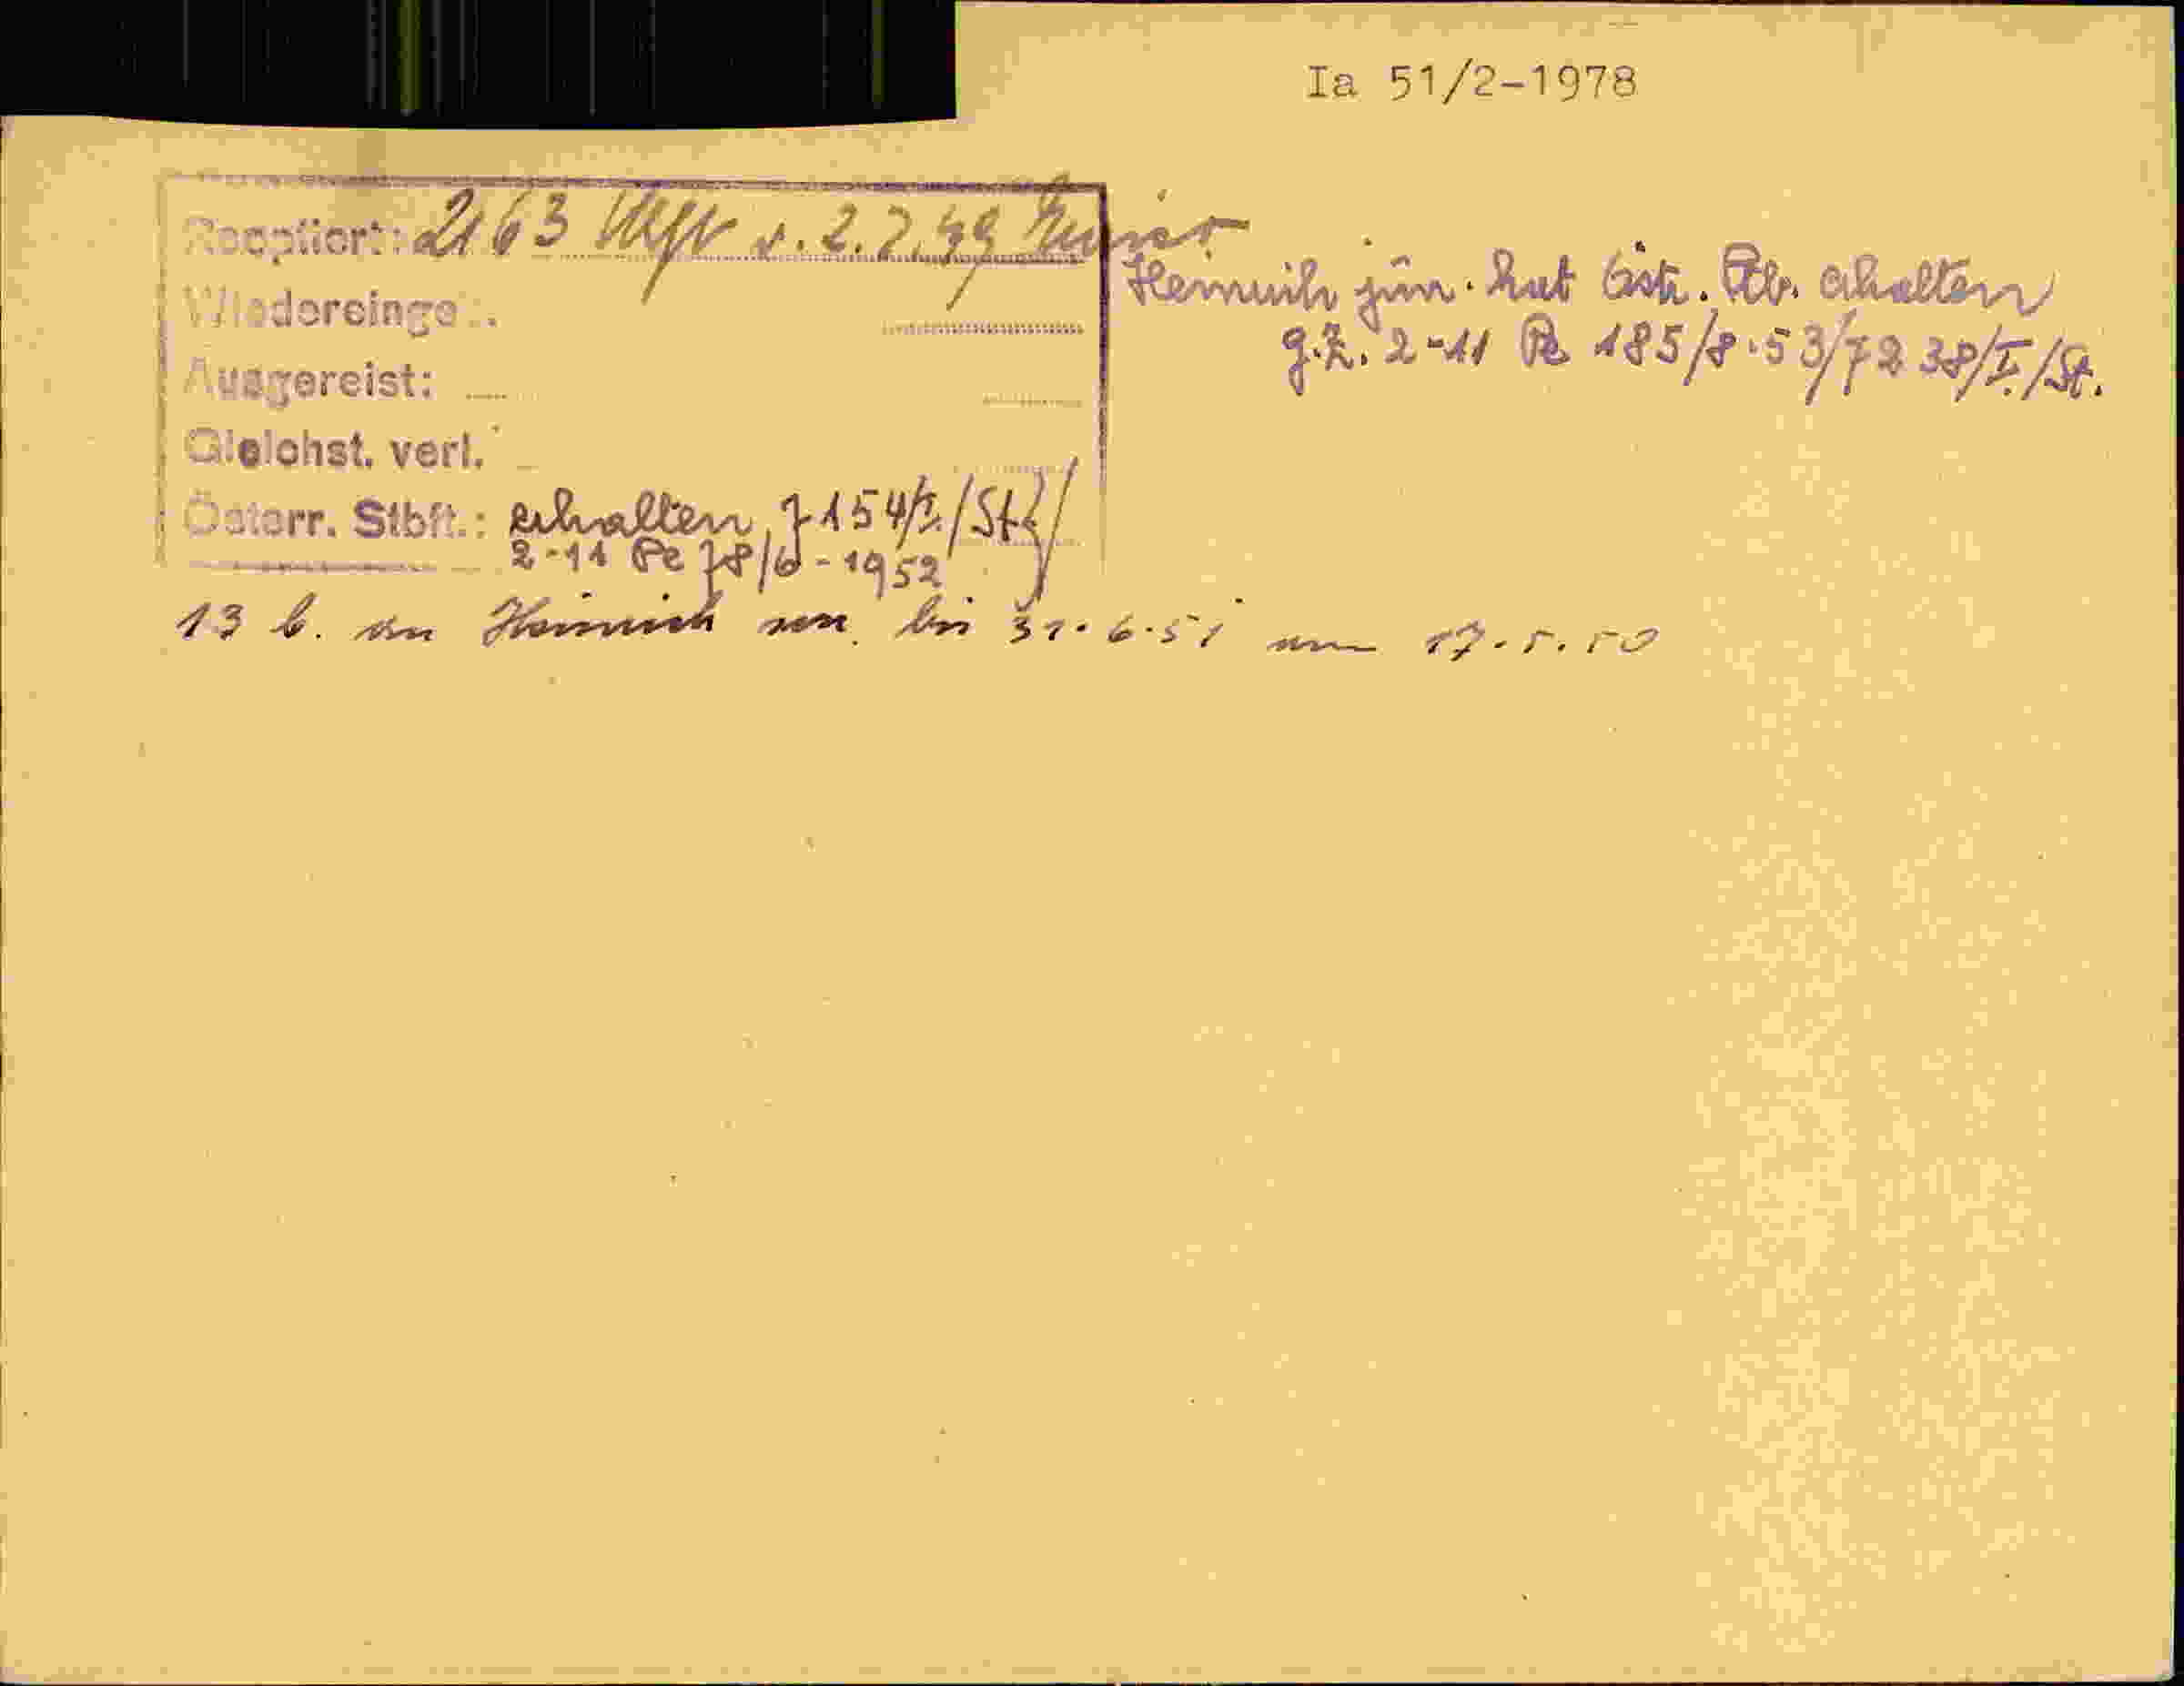 Ia 51/2-1978
Reoptiert: 2163 v. 2.7.49
Wiedereinge..
Ausgereist:
Gleichst. verl.
Österr. Stbft.: erhalten 7154/I./St
2-11 Pe 78/6-1952
Heinrich jun. hat östr. Stb. erhalten
g.Z. 2-11 Pe 185/8-53/7238/I./St.
13 b. an Heinrich sen. bis 31.6.51 am 17.5.50